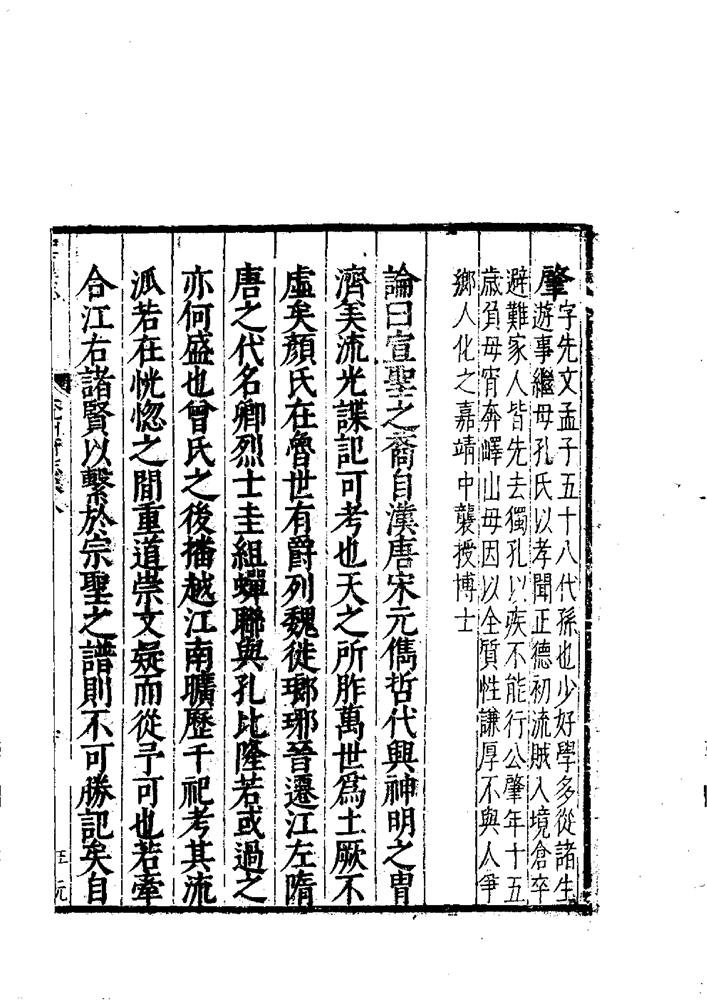 肇字先文孟子五十八代孫也少好學多從諸生
遊事繼母孔氏以孝聞正德初流賊入境倉卒
避難家人皆先去獨孔以疾不能行公肇年十五
歲負母宵奔嶧山母因以全質性謙厚不與人爭
鄉人化之嘉靖中襲授博士
論曰宣聖之裔自漢唐宋元儁哲代興神明之胄
濟美流光諜記可考也天之所胙萬世爲土厥不
虛矣顏氏在魯世有爵列魏徙瑯琊晉遷江左隋
唐之代名卿烈士圭組蟬聯與孔比隆若或過之
亦何盛也曾氏之後播越江南曠歷千祀考其流
派若在恍惚之間重道崇文疑而從予可也若牽
合江右諸賢以繫於宗聖之譜則不可勝記矣自